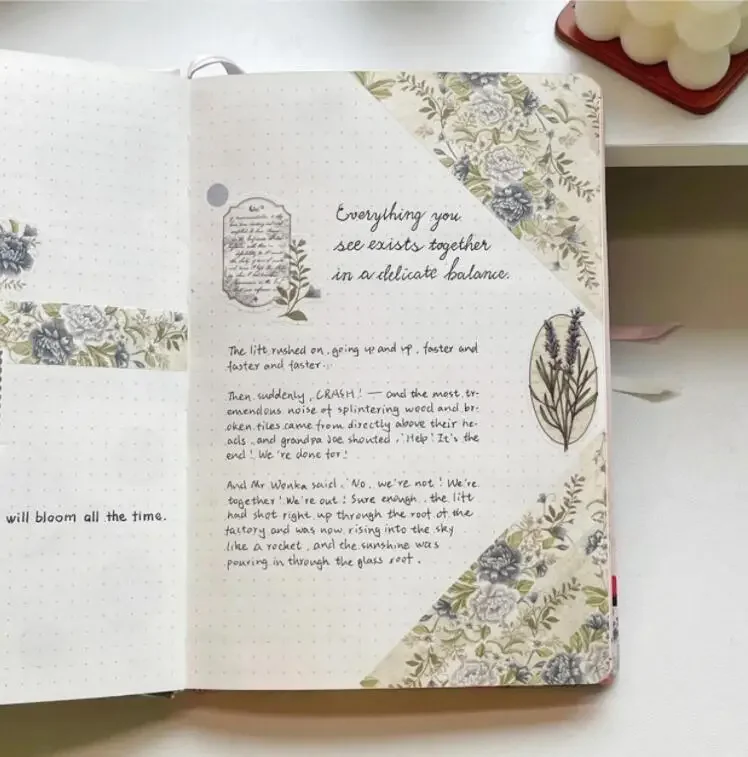 will bloom all the time.
Everything you
see exists together
in a delicate balance.
The lift rushed on, going up and up, faster and
faster and faster...
Then suddenly, CRASH! — and the most tr-
emendous noise of splintering wood and br-
oken tiles came from directly above their he-
ads, and grandpa Joe shouted, 'Help! It's the
end! We're done for!
And Mr Wonka said, 'No, we're not! We're
together! We're out! Sure enough, the lift
had shot right up through the roof of the
factory and was now rising into the sky
like a rocket, and the sunshine was
pouring in through the glass roof.